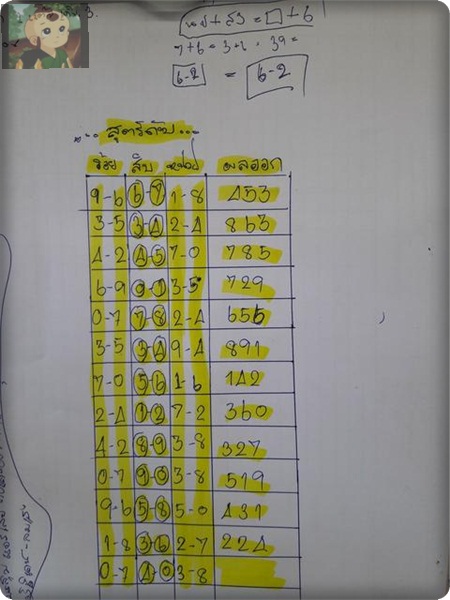 หน่วย+สิบ = □ + 6
7+6 = 3
6-2 = 6-2
สูตรดับ
ร้อย สิบ หน่วย ผลออก
9-6 6-7 1-8 453
3-5 3-4 2-4 863
4-2 4-5 7-0 785
6-9 3-5 729
0-7 7-8 2-4 656
3-5 3-4 9-4 891
7-0 5-6 1-6 142
2-4 1-2 7-2 360
4-2 8-9 3-8 327
0-7 9-0 3-8 519
9-6 5-8 5-0 431
1-8 3-6 2-7 224
0-7 4-0 3-8